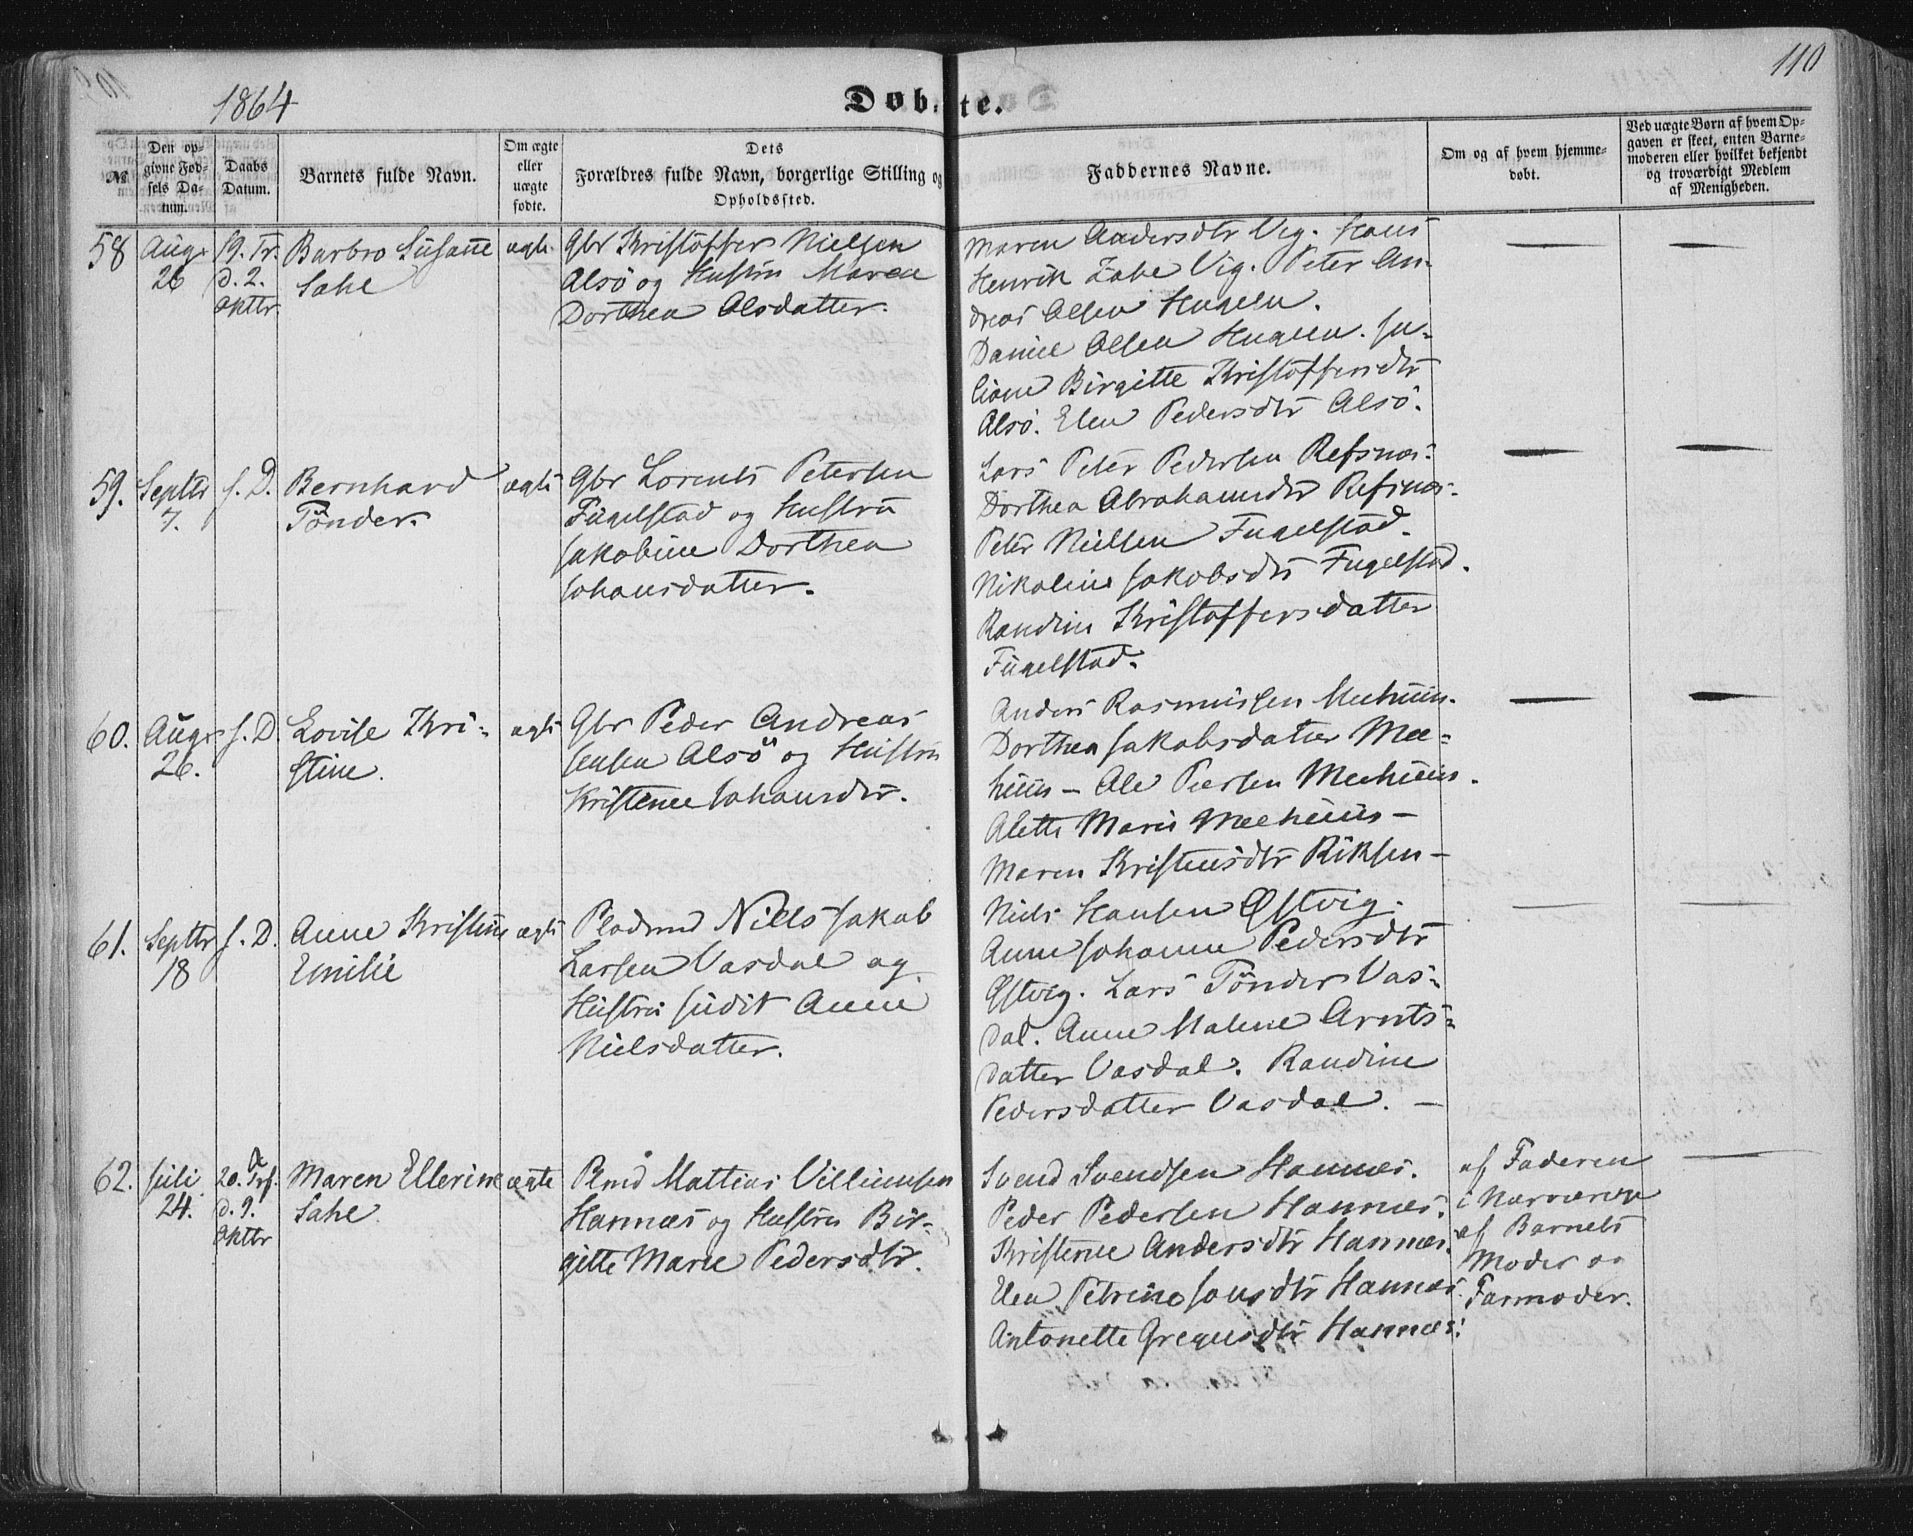 110
1864
Døbte.
№
Den opgivne Fødsels Datum.
Daabs Datum.
Barnets fulde Navn.
Om ægte eller uægte fødte.
Dets Forældres fulde Navn, borgerlige Stilling og Opholdssted.
Faddernes Navne.
Om og af hvem hjemmedøbt.
Ved uægte Børn af hvem Opgaven er skeet, enten Barnemoderen eller hvilket bekjendt og troværdigt Medlem af Menigheden.
58
Aug. 26
19. Tr. d. 2. Oktbr
Barbro Susanne
Sahe
ægte
Gbr Kristoffer Nielsen
Alsö og Hustru Maren
Dorthea Olsdatter.
Maren Andersdtr Vig. Hans
Henrik Zahe Vig. Peter An-
dreas Olsen Hugeln.
Daniel Olsen Hugeln. Ju-
liane Birgitte Kristoffersdtr
Alsö. Elen Pedersdtr Alsö.
59.
Septbr 7.
s. D.
Bernhard
Tönder.
ægte
Gbr Lorents Petersen
Fugelstad og Hustru
Jakobine Dorthea
Johansdatter.
Lars Peter Pedersen Refsnes.
Dorthea Abrahamsdtr Refsnes.
Peter Nielsen Fugelstad.
Nikoline Jakobsdtr Fugelstad.
Randine Kristoffersdatter
Fugelstad.
60.
Aug. 26.
s. D.
Lovise Kri-
stine.
ægte
Gbr Peder Andreas
Jensen Alsö og Hustru
Kristence Johansdtr.
Anders Rasmussen Meehuus.
Dorthea Jakobsdatter Mee-
huus – Ole Peersen Meehuus.
Alette Marie Meehuus –
Maren Kristensdtr Riksen –
61.
Septbr 18
s. D.
Anne Kristine
Emilie
ægte
Pladsmd Nills Jakob
Larsen Vasdal og
Hustru Judit Anne
Nielsdatter.
Niels Hansen Østvig.
Anne Johanne Pedersdtr
Østvig. Lars Tönder Vas-
dal. Anne Malene Arnts-
datter Vasdal. Randine
Pedersdatter Vasdal. –
62.
Juli 24.
20. Trf. d. 9. Oktbr
Maren Ellerine
Sahe
ægte
Plmd Mattias Villiumsen
Hannæs og Hustru Bir-
gitte Marie Pedersdtr.
Svend Svendsen Hannæs.
Peder Pedersen Hannæs.
Kristence Andersdtr Hannæs.
Elen Petrine Jonsdtr Hannæs.
Antonette Gregusdtr Hannæs.
af Faderen
i Nærværelse
af Barnets
Moder og
Farmoder.